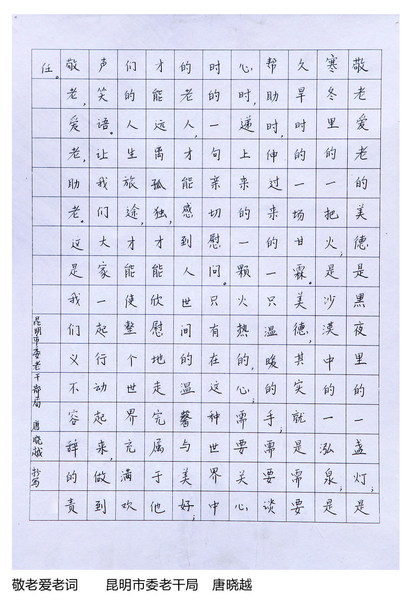 敬老爱老的美德是黑夜里的一盏灯;是
寒冬里的一把火;是沙漠中的一泓泉;是
久旱时的一场甘霖。美德,其实就是需要
帮助时,伸过来的一只温暖的手;需要谈
心时,递上亲的一颗火热的,心;需要关心
时的一句亲切慰问。只有在这种世界中
的老人,才能感到人世间的温馨与美好;
才能远离孤独,才能欣慰地走完属于他
们的人生旅途,才能使整个世界充满欢
声笑语。让我们大家一起行动起来,做到
敬老,爱老,助老。这是我们义不容辞的责
任。
昆明市委老干部局 唐晓越 抄写
敬老爱老词 昆明市委老干局 唐晓越